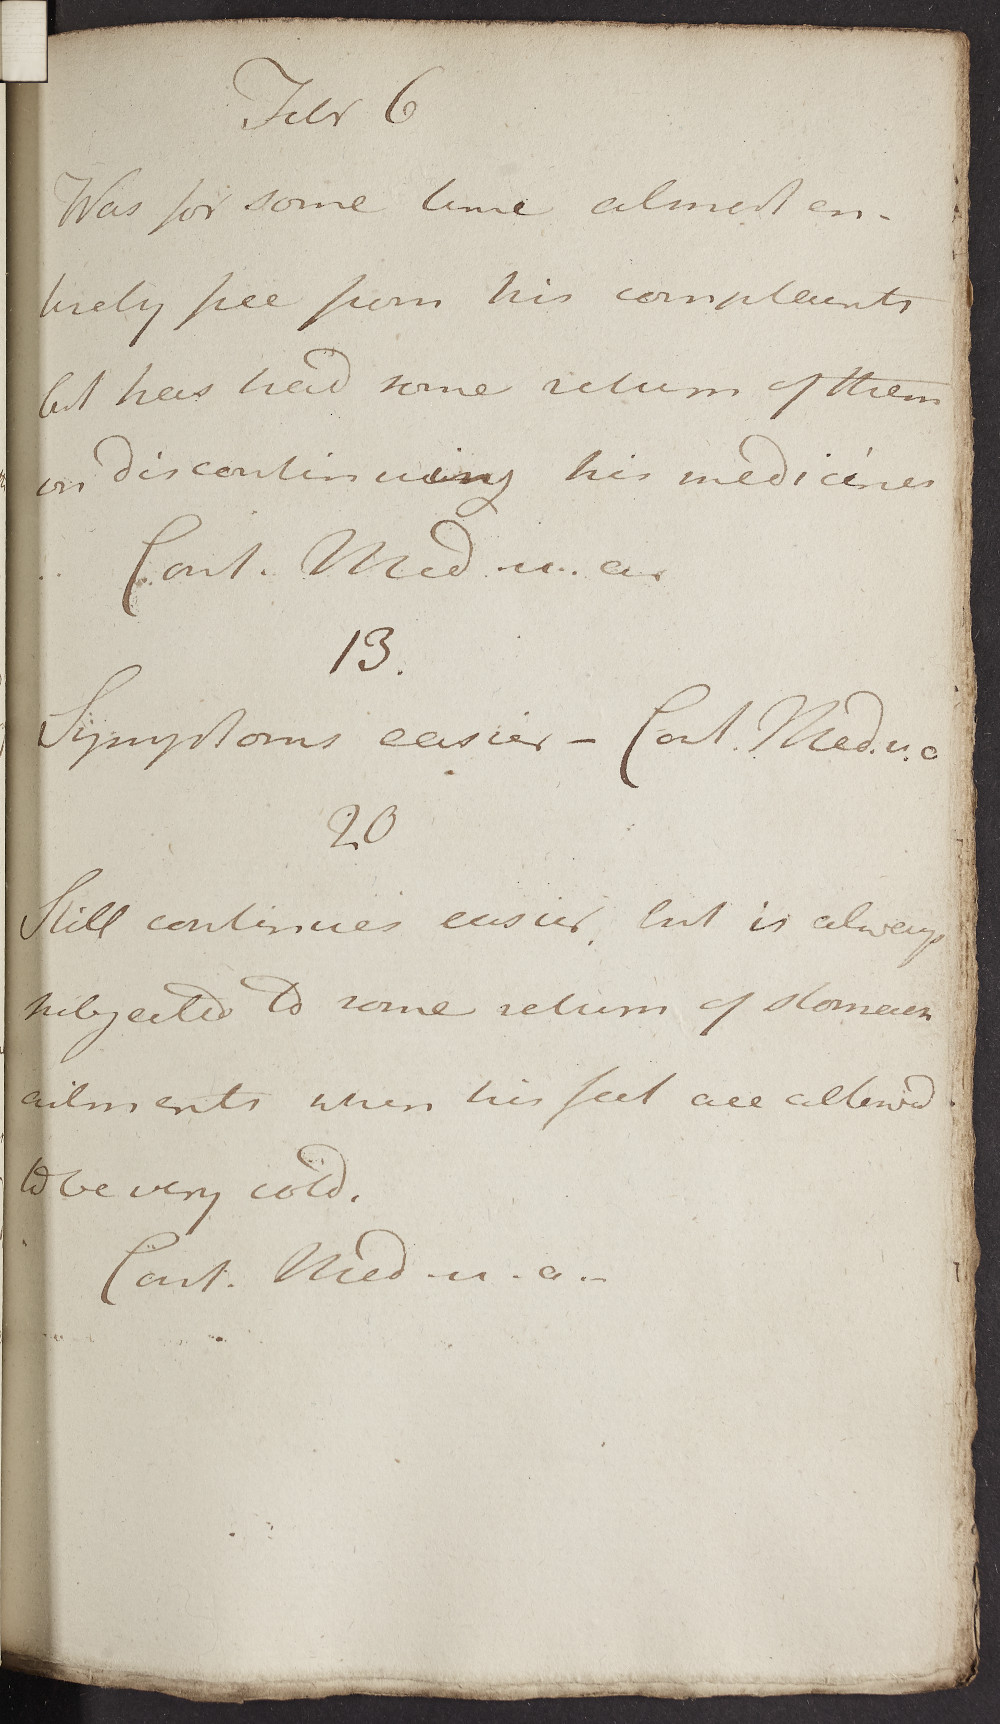 Febr 6
Was for some time almost en-
tirely free from his complaints
but has had some return of them
on discontinuing his medicines
Cont. Med. u. a.
13.
Symptoms easier - Cont. Med. u. a
20
Still continues easier, but is always
subjected to some return of stomach
ailments when his feet are allowed
to be very cold.
Cont. Med. u. a.